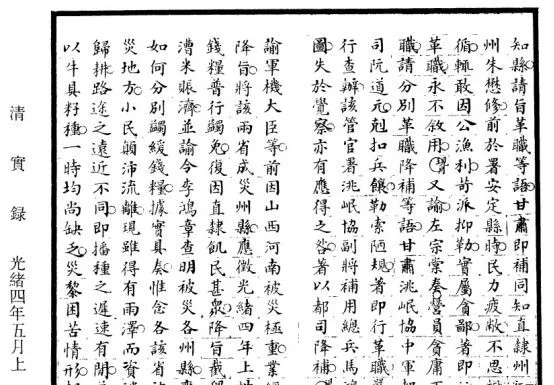 知縣請旨革職等語甘肅即補同知直隸州
州朱懋修前於署安定縣時民力疲敝不思
循輒敢因公漁利苛派抑勒實屬貪鄙著即
革職永不敘用又諭左宗棠奏營員貪庸
職請分別革職降補等語甘肅洮岷協中軍
司阮道元剋扣兵餉勒索陋規著即行革職
行查辦該管官署洮岷協副將補用總兵馬
圖失於覺察亦有應得之咎著以都司降補
諭軍機大臣等前因山西河南被災極重業
降旨將該兩省成災州縣應徵光緒四年上
錢糧普行蠲免復因直隸飢民甚眾降旨截
漕米賑濟並諭令李鴻章查明被災各州縣
如何分別蠲緩錢糧據實具奏惟念各該省
災地方小民顛沛流離現雖得有雨澤而資
歸耕路途之遠近不同即播種之遲速有
以牛具籽種一時均尚缺乏災黎困苦情形
清實錄 光緒四年五月上